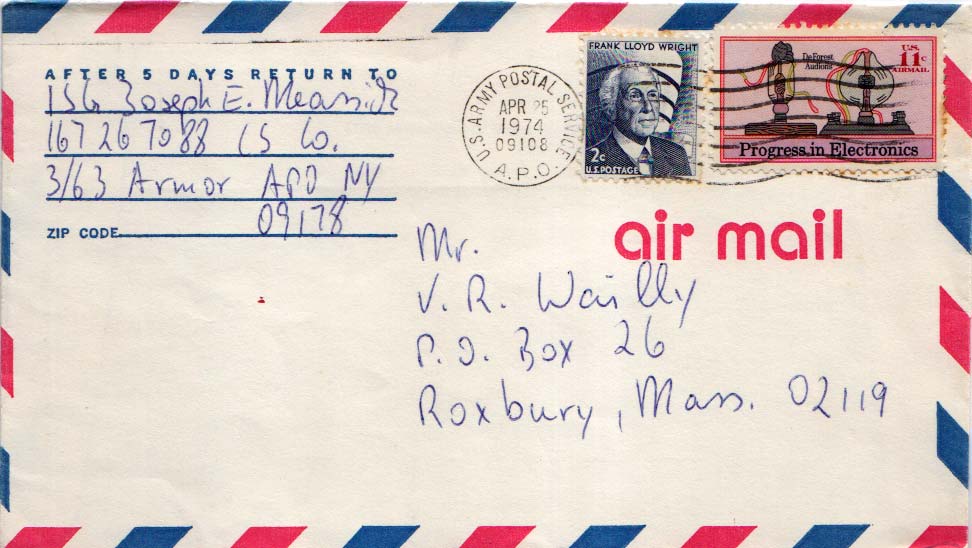 AFTER 5 DAYS RETURN TO
1SG Joseph E.
167 26 7088 CS Co.
3/63 Armor APO NY
09178
ZIP CODE
U.S. ARMY POSTAL SERVICE
APR 25
1974
09108
A.P.O.
FRANK LLOYD WRIGHT
2c
U.S. POSTAGE
De Forest
Audions
U.S.
11c
AIRMAIL
Progress in Electronics
air mail
Mr.
V. R. Wailly
P.O. Box 26
Roxbury, Mass. 02119